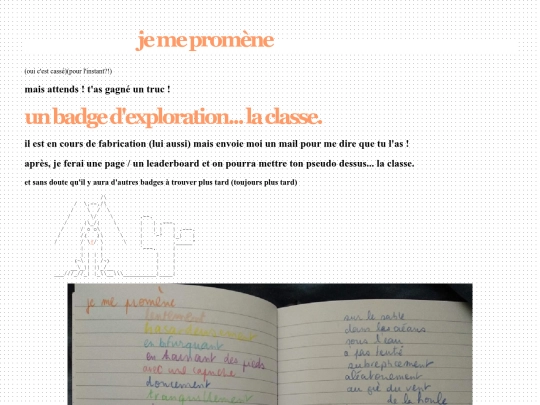 je me promène
(oui c'est cassé)(pour l'instant?!)
mais attends ! t'as gagné un truc !
un badge d'exploration... la classe.
il est en cours de fabrication (lui aussi) mais envoie moi un mail pour me dire que tu l'as !
après, je ferai une page / un leaderboard et on pourra mettre ton pseudo dessus... la classe.
et sans doute qu'il y aura d'autres badges à trouver plus tard (toujours plus tard)
je me promène
lentement
hasardeusement
en bifurquant
en traînant des pieds
avec une capuche
doucement
tranquillement
sur le sable
dans les océans
sous l'eau
à pas feutré
subrepticement
aléatoirement
au gré du vent
de la houle